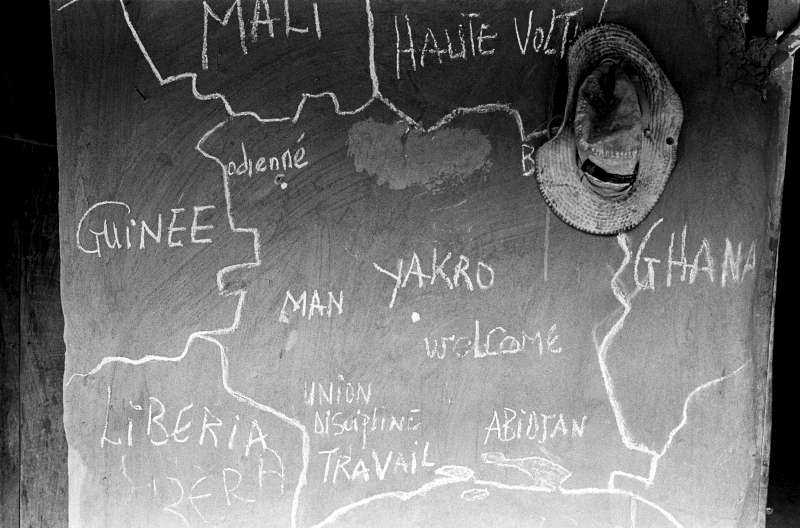 MALI
HAUTE VOLTA
odienné
B
GUINEE
GHANA
YAKRO
MAN
WELCOMÉ
LIBERIA
UNION
DISCIPLINE
TRAVAIL
ABIDJAN